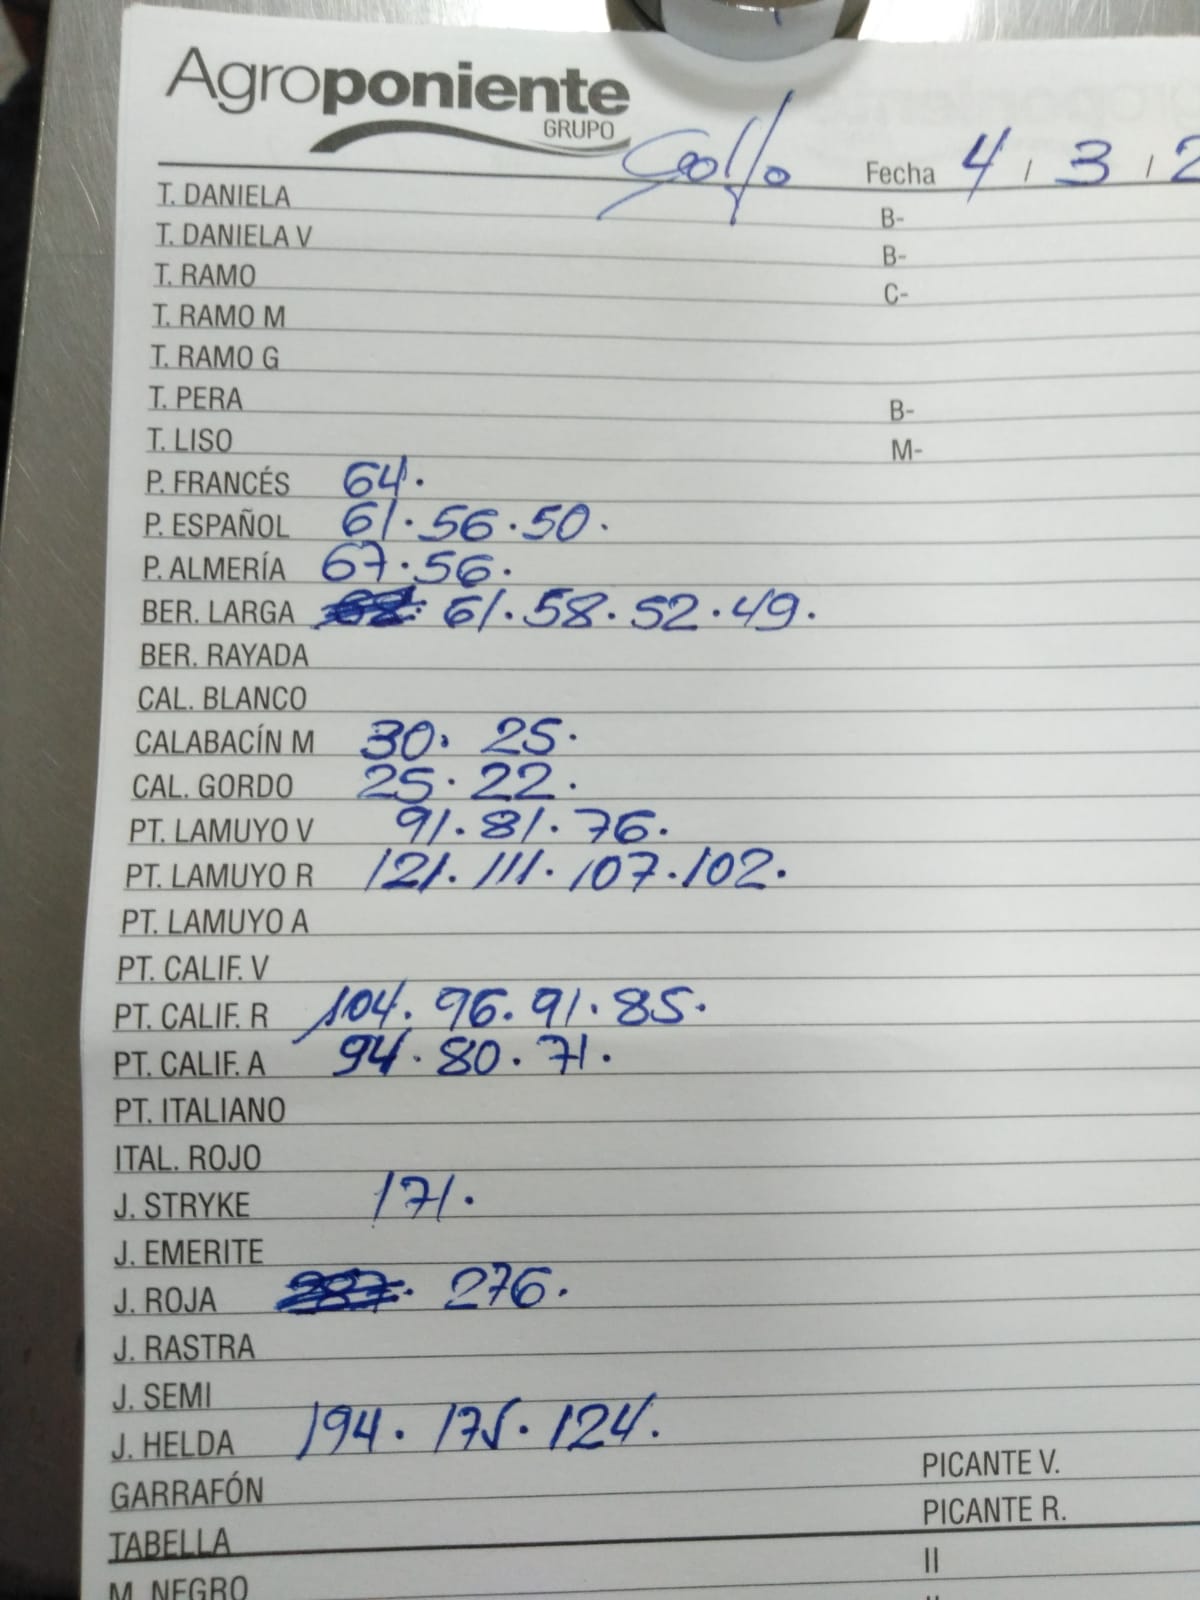 Agroponiente
GRUPO
Golfo Fecha 4 / 3 / 2
T. DANIELA B-
T. DANIELA V B-
T. RAMO C-
T. RAMO M
T. RAMO G
T. PERA B-
T. LISO M-
P. FRANCÉS 64.
P. ESPAÑOL 61. 56. 50.
P. ALMERÍA 67. 56.
BER. LARGA 61. 58. 52. 49.
BER. RAYADA
CAL. BLANCO
CALABACÍN M 30. 25.
CAL. GORDO 25. 22.
PT. LAMUYO V 91. 81. 76.
PT. LAMUYO R 121. 111. 107. 102.
PT. LAMUYO A
PT. CALIF. V
PT. CALIF. R 104. 96. 91. 85.
PT. CALIF. A 94. 80. 71.
PT. ITALIANO
ITAL. ROJO
J. STRYKE 171.
J. EMERITE
J. ROJA 276.
J. RASTRA
J. SEMI
J. HELDA 194. 175. 124.
GARRAFÓN PICANTE V.
TABELLA PICANTE R.
M. NEGRO II